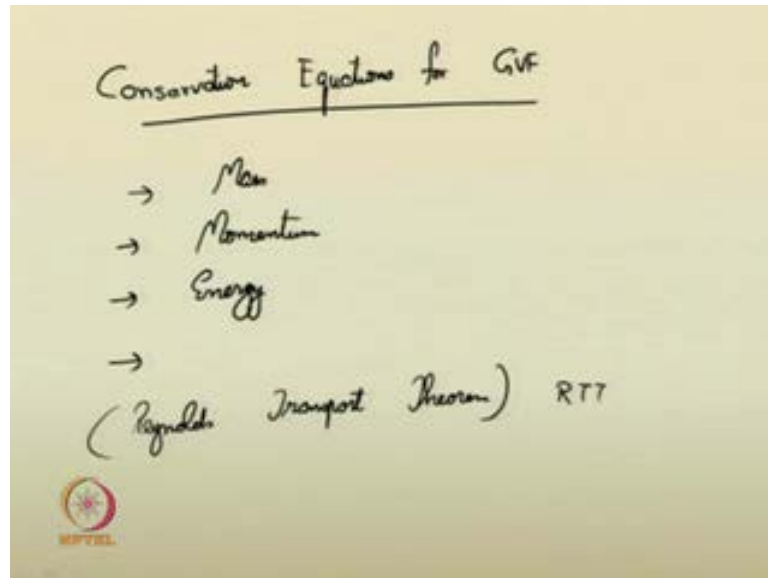 Conservation Equations for GVF
→ Mass
→ Momentum
→ Energy
→
(Reynolds Transport Theorem) RTT
NPTEL